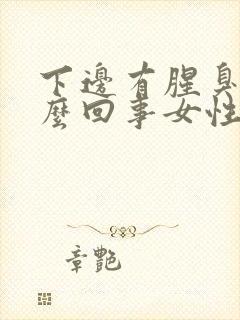 下邊有腥臭
麼回事女性
章艷